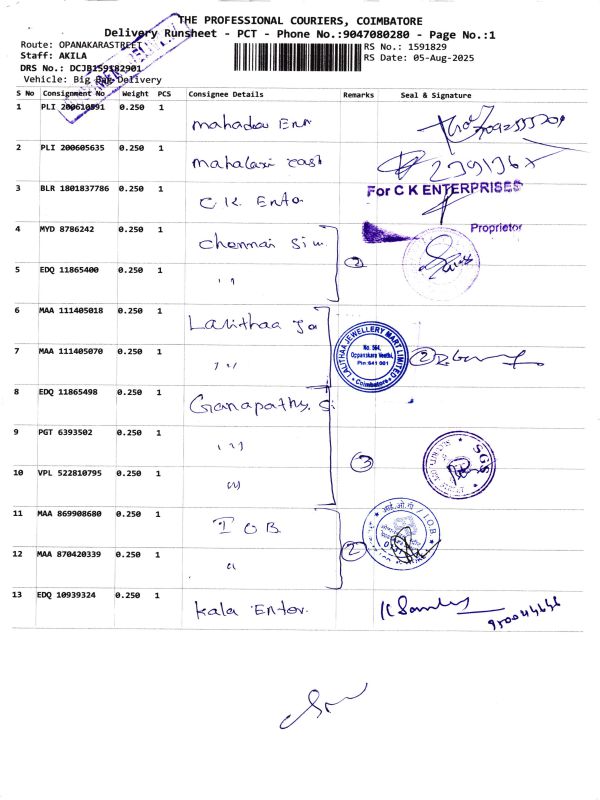 THE PROFESSIONAL COURIERS, COIMBATORE
Delivery Runsheet - PCT - Phone No.:9047080280 - Page No.:1
Route: OPANAKARASTREET
Staff: AKILA
DRS No.: DCJB159182901
Vehicle: Big Bag Delivery
RS No.: 1591829
RS Date: 05-Aug-2025
S No Consignment No Weight PCS Consignee Details Remarks Seal & Signature
1 PLI 200610591 0.250 1 mahadev Ent
2 PLI 200605635 0.250 1 mahalaxi cast
3 BLR 1801837786 0.250 1 C K Ente
For C K ENTERPRISES
Proprietor
4 MYD 8786242 0.250 1 Chennai Sil
5 EDQ 11865400 0.250 1 ,,
2
6 MAA 111405018 0.250 1 Lalithaa Je
7 MAA 111405070 0.250 1 ,,
LALITHAA JEWELLERY MART LIMITED
No. 564,
Oppanakara Veethi,
Phn: 641 001
Coimbatore
2
8 EDQ 11865498 0.250 1 Ganapathy Si
9 PGT 6393502 0.250 1 ,,
3
SGS
10 VPL 522810795 0.250 1 ,,
11 MAA 869908680 0.250 1 I O B
आई.ओ.बी / I.O.B.
12 MAA 870420339 0.250 1 ,,
2
13 EDQ 10939324 0.250 1 Kala Enter.